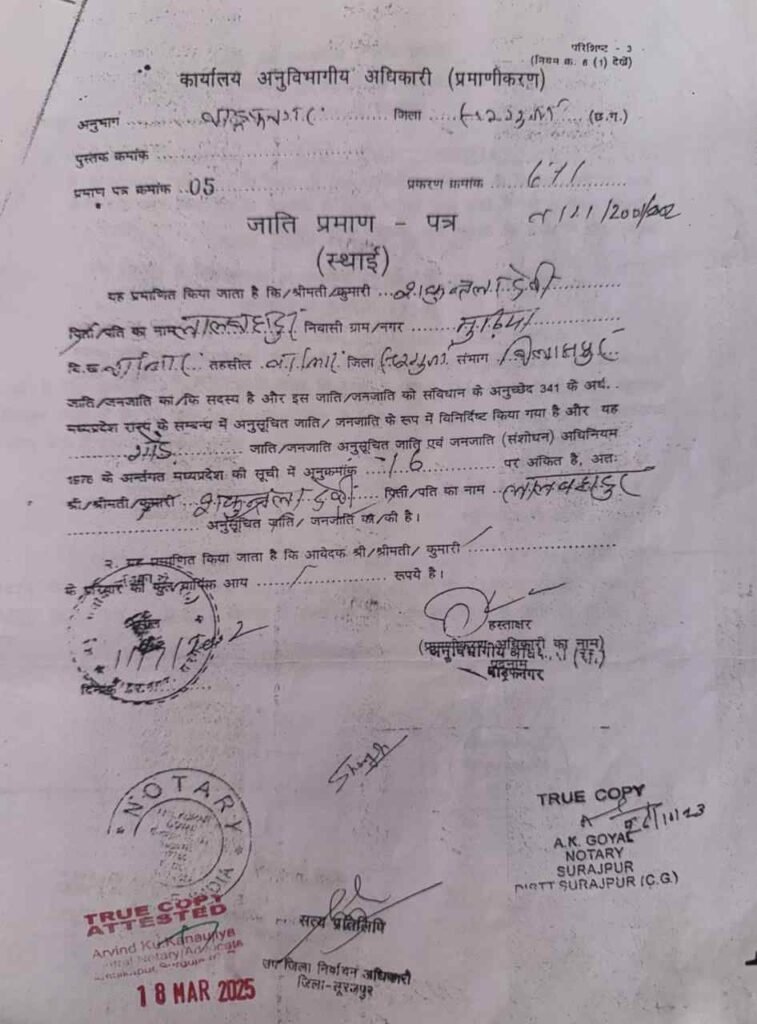 परिशिष्ट - 3
(नियम क्र. 6 (1) देखें)
कार्यालय अनुविभागीय अधिकारी (प्रमाणीकरण)
अनुभाग वाड्रफनगर जिला सरगुजा (छ.ग.)
पुस्तक कमांक
प्रमाण पत्र कमांक 05 प्रकरण क्रमांक 671
जाति प्रमाण - पत्र
(स्थाई)
यह प्रमाणित किया जाता है कि/श्रीमती/कुमारी शकुन्तला देवी
पिता/पति का नाम लालबहादुर निवासी ग्राम/नगर
तहसील जिला सरगुजा संभाग बिलासपुर
जाति/जनजाति का/कि सदस्य है और इस जाति/जनजाति को संविधान के अनुच्छेद 341 के अधं..
मध्यप्रदेश राज्य के सम्बन्ध में अनुसूचित जाति/ जनजाति के रूप में विनिर्दिष्ट किया गया है और यह
गोंड जाति/जनजाति अनुसूचित जाति एवं जनजाति (संशोधन) अधिनियम
1976 के अर्न्तगत मध्यप्रदेश की सूची में अनुकमांक 16 पर अंकित है, अतः
श्री/श्रीमती/कुमारी शकुन्तला देवी पिता/पति का नाम लालबहादुर
अनुसूचित जाति/ जनजाति का/की है।
२. यह प्रमाणित किया जाता है कि आवेदक श्री/श्रीमती/ कुमारी
के परिवार की कुल वार्षिक आय रूपये है।
हस्ताक्षर
अधिकारी का नाम)
पदनाम
NOTARY
TRUE COPY
A.K. GOYAL
NOTARY
SURAJPUR
DISTT SURAJPUR (C.G.)
TRUE COPY
ATTESTED
Arvind Ku Kanaujiya
Notary/Advocate
18 MAR 2025
सत्य प्रतिलिपि
उप जिला निर्वाचन अधिकारी
जिला-सूरजपुर